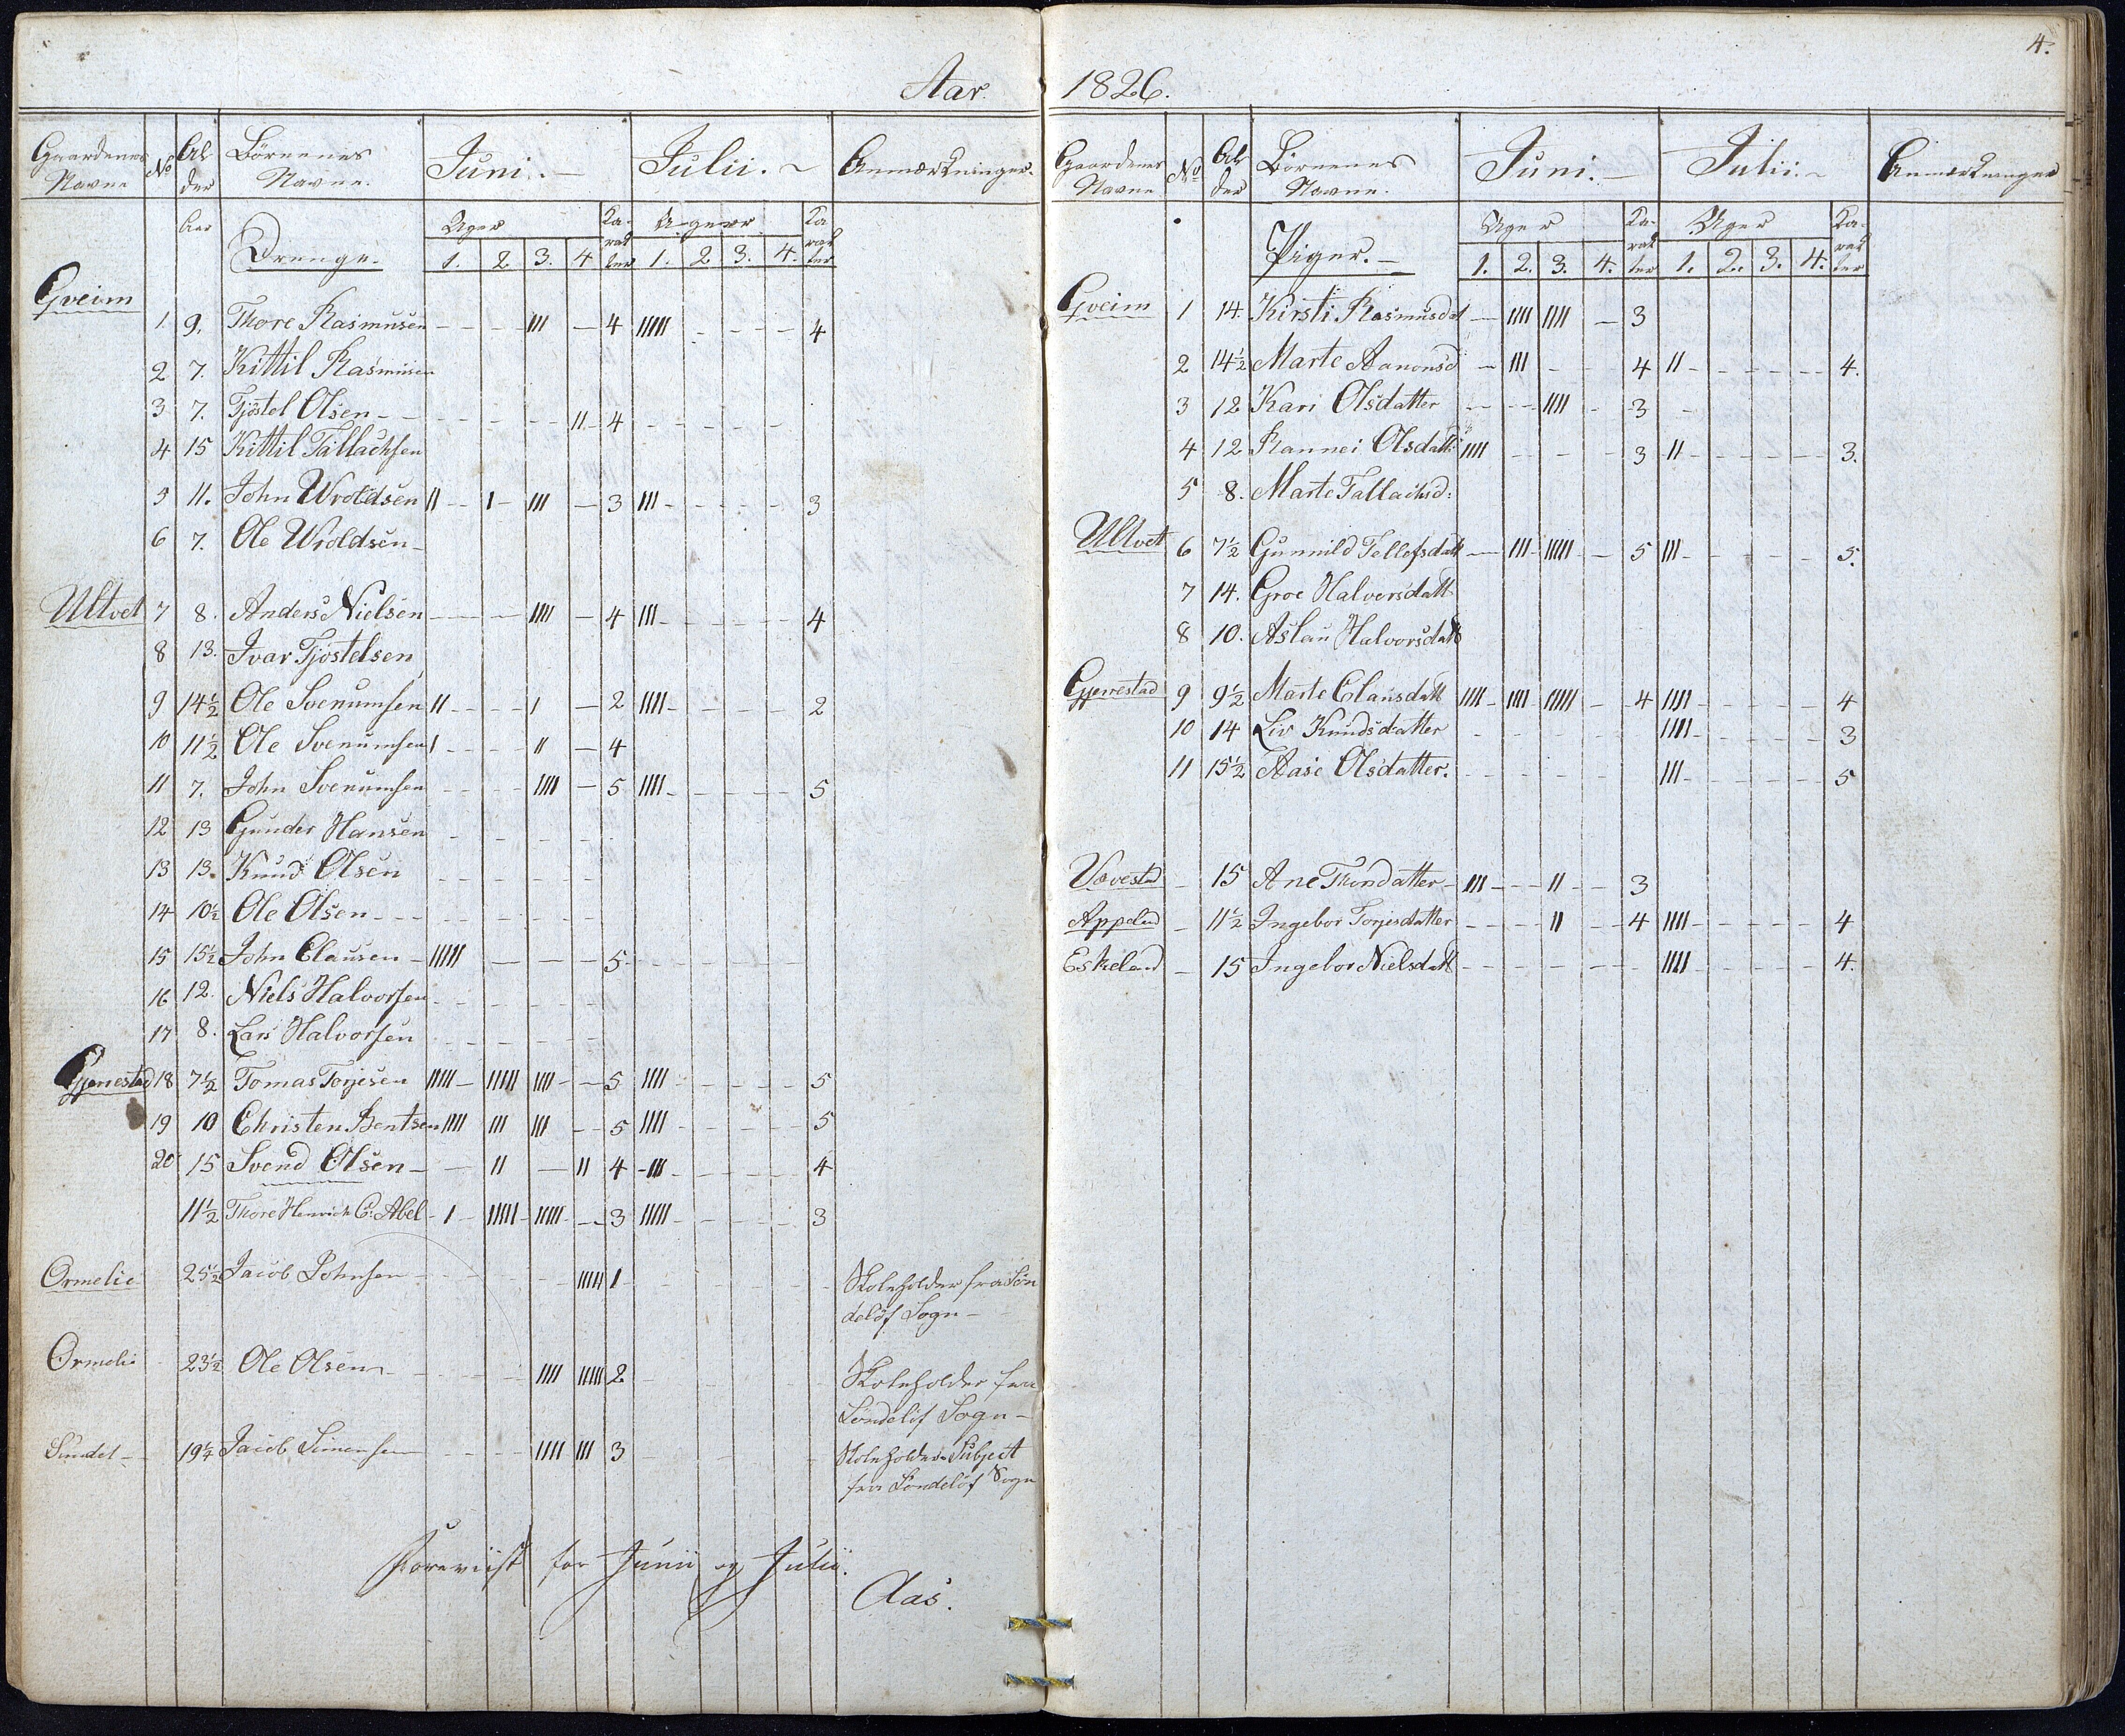 4.
Aar. 1826.
Gaardenes Navne | No | Alder | Børnenes Navne. | Juni. – | Julii. ~ | Anmærkninger.
Aar | Drenge. | Uger 1. 2 3. 4 | Karakter | Uger 1. 2 3. 4. | Karakter
Gveim
1. 9. Thore Rasmusen - - - - IIII - 4 IIIII - - - - 4
2 7. Kittil Rasmusen
3 7. Tjöstel Olsen - - - - - - II - 4 - - - - -
4 15 Kittil Tallachsen
5 11. John Wroldsen II - - I - III - 3 III - - - - - 3
6 7. Ole Wroldsen -
Ultvet 7 8. Anders Nielsen - - - IIII - 4 III - - - - - 4
8 13. Ivar Tjøstelsen
9 14½ Ole Svenumsen II - - - - I - 2 IIII - - - - - 2
10 11½ Ole Svenumsen I - - - - II - 4
11 7. John Svenumsen - - - - IIII - 5 IIII - - - - - 5
12 13 Gunder Hansen - - - - -
13 13. Knud Olsen - - - - - -
14 10½ Ole Olsen - - - - - - - -
15 15½ John Clausen - IIIII - - - - 5 - - - - - -
16 12. Niels Halvorsen - - - - - -
17 8. Lars Halvorsen - - - - - -
Gjerrestad 18 7½ Tomas Torjesen IIIII - IIIII IIII - - 5 IIII - - - - - 5
19 10 Christen Bentsen IIII III III - - 5 IIII - - - - - 5
20 15 Svend Olsen - - II - II 4 - III - - - - - 4
11½ Thore Henrich C. Abel - I - IIIII - IIIII - - 3 IIIII - - - - - 3
Ormelie 25½ Jacob Johnsen - - - - - IIIII 1 - - - - - - Skoleholder fra Søn
deløf Sogn -
Ormelie 23½ Ole Olsen - - - - - IIII IIIII 2 - - - - Skoleholder fra
Søndeløf Sogn -
Sundet - 19½ Jacob Simensen - - - - IIII III 3 - - - - Skoleholder-Subject
fra Søndeløf Sogn
Foreviist for Junii og Julii.
Aas.
Gaardenes Navne | No | Alder | Børnenes Navne. | Juni. – | Julii. ~ | Anmærkninger
Piger. – | Uger 1. 2. 3. 4. | Karakter | Uger 1. 2. 3. 4. | Karakter
Gveim 1 14. Kirsti Rasmusdat - IIII IIII - 3
2 14½ Marte Aanonsd - III - - 4 II - - - - - - 4.
3 12 Kari Olsdatter - - - IIII - 3 -
4 12 Rannei Olsdatt IIII - - - - 3 II - - - - - - 3.
5 8. Marte Tallachsd:
Ultvet 6 7½ Gunnild Tellefsdatt - III - IIIII - - 5 III - - - - - 5.
7 14. Groe Halvorsdatt
8 10. Aslau Halvorsdatt
Gjerrestad 9 9½ Marte Clausdatt IIII - IIII - IIIII - 4 IIII - - - - - 4
10 14 Liv Knudsdatter - - - - - - IIII - - - - - 3
11 15½ Aase Olsdatter. - - - - - - III - - - - - 5
Vævestad - 15 Ane Thordatter - III - - - II - - 3
Appelad - 11½ Ingebor Torjesdatter - - - - II - - 4 IIII - - - - - 4
Eskeland - 15 Ingebor Nielsdatt - - - - - - - IIII - - - - - 4.